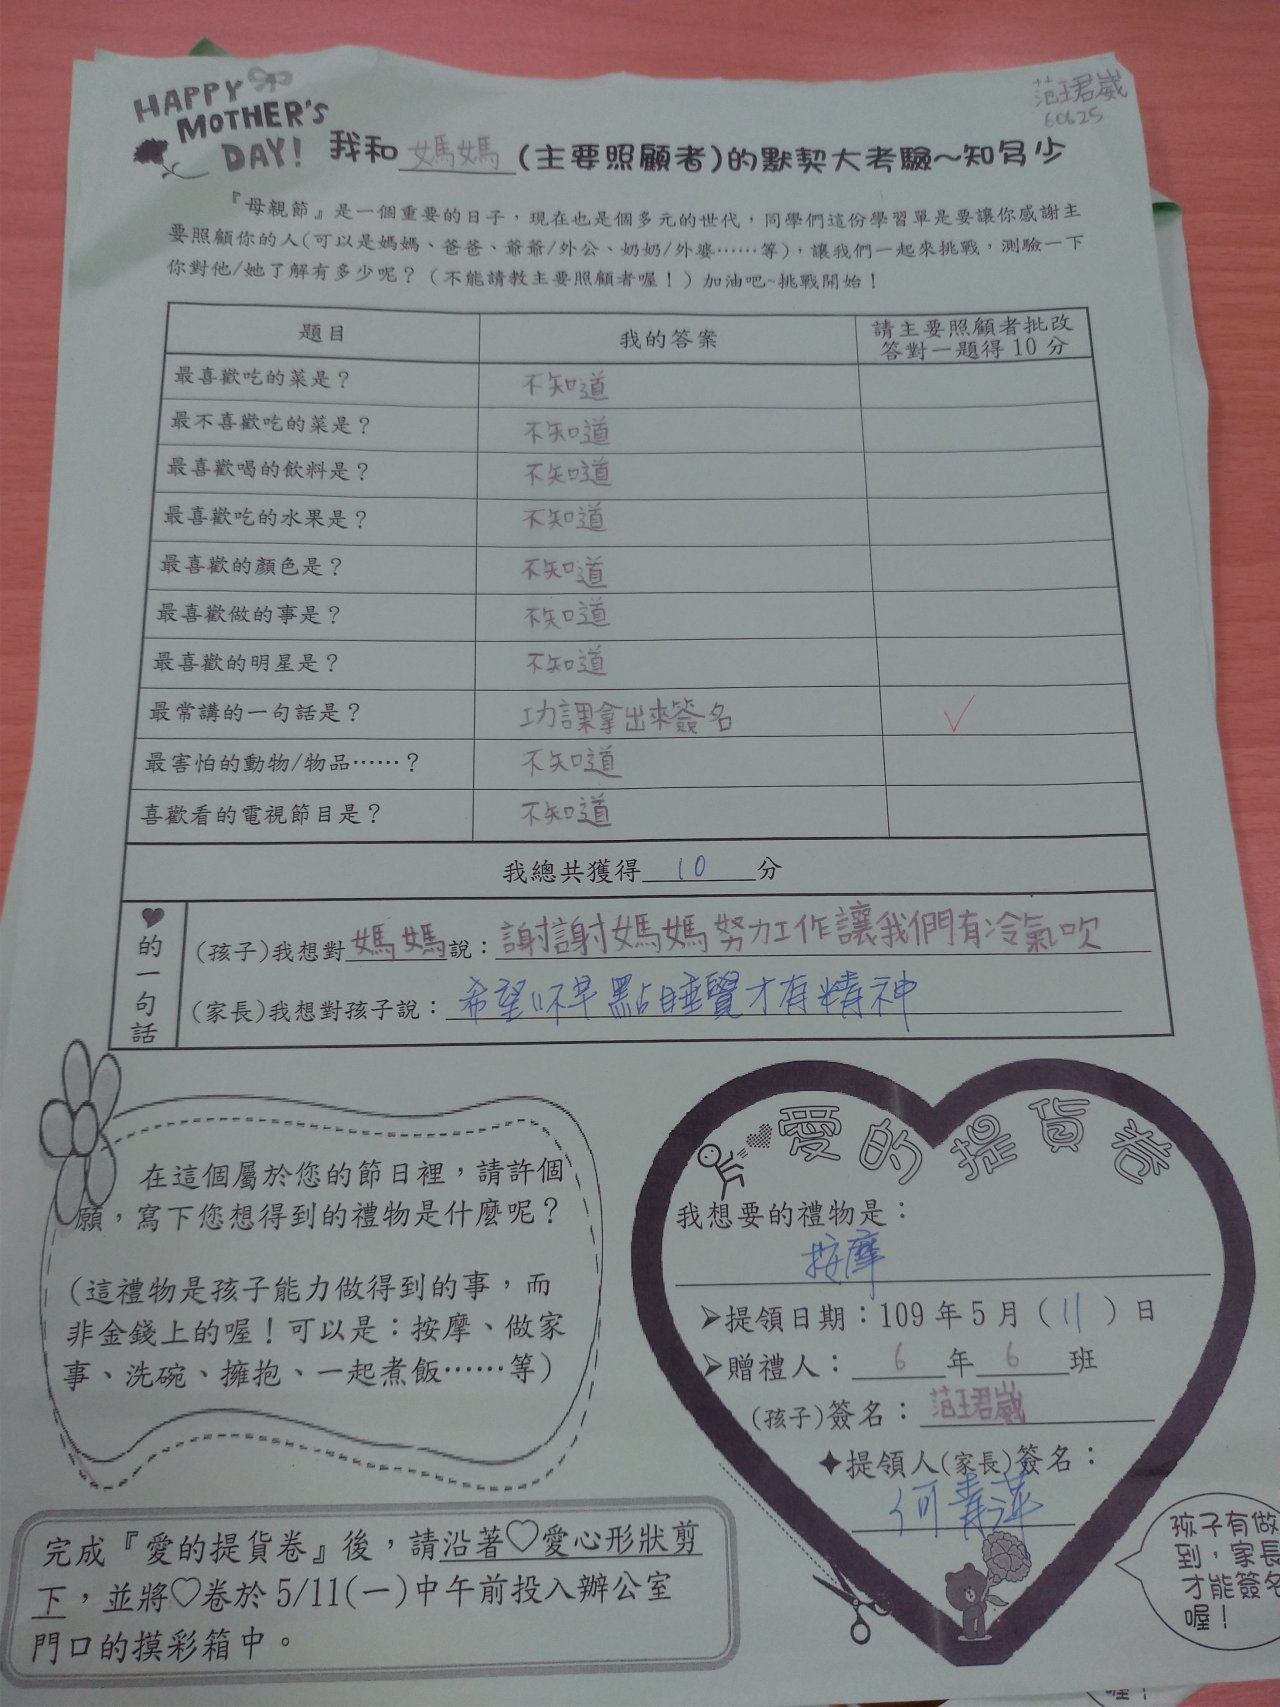 范王君崴
60625
HAPPY
MOTHER'S
DAY!
我和媽媽(主要照顧者)的默契大考驗~知多少
『母親節』是一個重要的日子，現在也是個多元的世代，同學們這份學習單是要讓你感謝主
要照顧你的人(可以是媽媽、爸爸、爺爺/外公、奶奶/外婆……等)，讓我們一起來挑戰，測驗一下
你對他/她了解有多少呢？（不能請教主要照顧者喔！）加油吧~挑戰開始！
題目 我的答案 請主要照顧者批改
答對一題得10分
最喜歡吃的菜是？ 不知道
最不喜歡吃的菜是？ 不知道
最喜歡喝的飲料是？ 不知道
最喜歡吃的水果是？ 不知道
最喜歡的顏色是？ 不知道
最喜歡做的事是？ 不知道
最喜歡的明星是？ 不知道
最常講的一句話是？ 功課拿出來簽名 ✓
最害怕的動物/物品……？ 不知道
喜歡看的電視節目是？ 不知道
我總共獲得 10 分
♥的一句話
(孩子)我想對媽媽說：謝謝媽媽努力工作讓我們有冷氣吹
(家長)我想對孩子說：希望你早點睡覺才有精神
在這個屬於您的節日裡，請許個
願，寫下您想得到的禮物是什麼呢？
(這禮物是孩子能力做得到的事，而
非金錢上的喔！可以是：按摩、做家
事、洗碗、擁抱、一起煮飯……等)
完成『愛的提貨卷』後，請沿著♡愛心形狀剪
下，並將♡卷於 5/11(一)中午前投入辦公室
門口的摸彩箱中。
愛的提貨卷
我想要的禮物是：
按摩
➤提領日期：109 年 5 月（11）日
➤贈禮人： 6 年 6 班
(孩子)簽名：范王君崴
✦提領人(家長)簽名：
孩子有做
到，家長
才能簽名
喔！
喔！